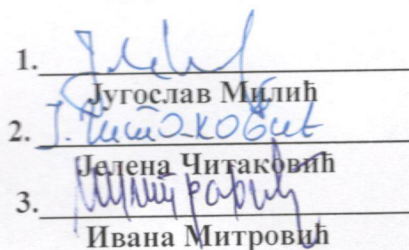 1.
Југослав Милић
2. Ј. Читаковић
Јелена Читаковић
3.
Ивана Митровић